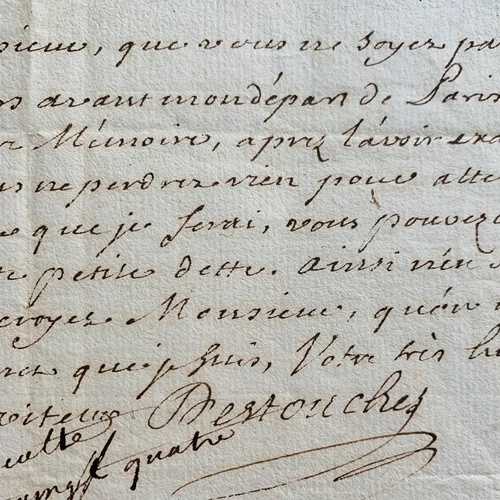 sieur, que vous ne soyez pa
rs avant mon départ de Paris
r Mémoire, aprez l'avoir exa
us ne perdrez rien pour atte
e que je serai, vous pouvez
te petite dette. ainsi n'en
croyez Monsieur, qu'on
que je suis, Votre très hu
Destouches
quatre